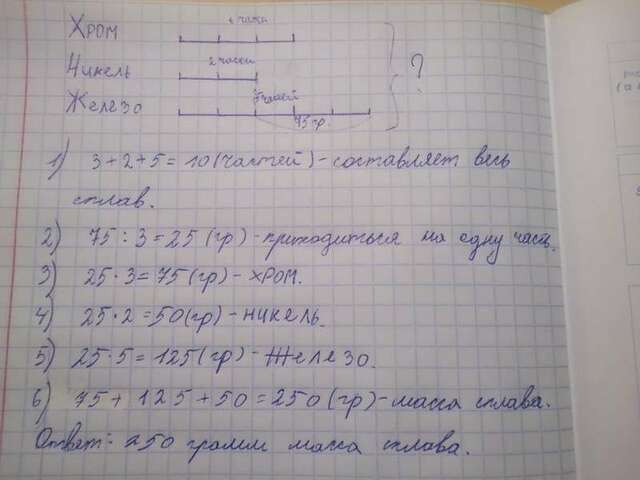 Хром
Никель 2 части
Железо 5 частей
75 гр.
?
1) 3+2+5=10 (частей) - составляет весь
сплав.
2) 75:3=25 (гр) - приходиться на одну часть.
3) 25·3=75 (гр) - хром.
4) 25·2=50 (гр) - никель.
5) 25·5=125 (гр) - Железо.
6) 75+125+50=250 (гр) - масса сплава.
Ответ: 250 грамм масса сплава.